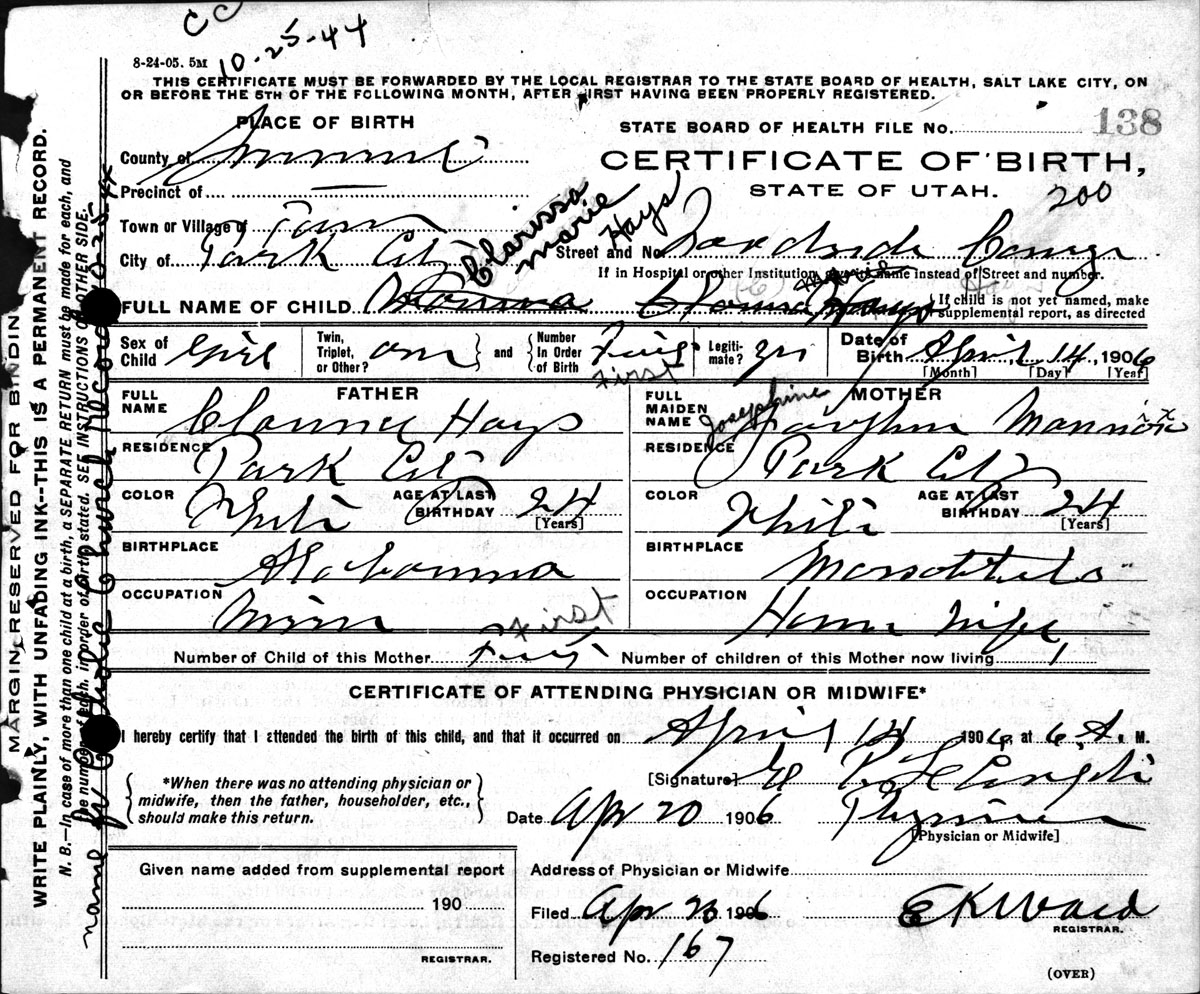 CC
10-25-44
8-24-05. 5M
THIS CERTIFICATE MUST BE FORWARDED BY THE LOCAL REGISTRAR TO THE STATE BOARD OF HEALTH, SALT LAKE CITY, ON
OR BEFORE THE 5TH OF THE FOLLOWING MONTH, AFTER FIRST HAVING BEEN PROPERLY REGISTERED.
PLACE OF BIRTH
STATE BOARD OF HEALTH FILE No. 138
County of Summit
CERTIFICATE OF BIRTH,
STATE OF UTAH.
200
Precinct of
Town or Village of
City of Park City
Clarissa
Marie
Hays
Street and No.
If in Hospital or other Institution, give its name instead of Street and number.
FULL NAME OF CHILD Hays
If child is not yet named, make
supplemental report, as directed
Sex of Child Girl
Twin, Triplet, or Other?
and
Number In Order of Birth First
First
Legiti-mate? yes
Date of Birth April 14, 1906
[Month] [Day] [Year]
FATHER
FULL NAME Hays
RESIDENCE Park City
COLOR White
AGE AT LAST BIRTHDAY 24
[Years]
BIRTHPLACE Alabama
OCCUPATION Miner
MOTHER
FULL MAIDEN NAME Josephine
RESIDENCE Park City
COLOR White
AGE AT LAST BIRTHDAY 24
[Years]
BIRTHPLACE
OCCUPATION House Wife
First
Number of Child of this Mother First
Number of children of this Mother now living 1
CERTIFICATE OF ATTENDING PHYSICIAN OR MIDWIFE*
I hereby certify that I attended the birth of this child, and that it occurred on April 14 1906, at 6 A. M.
*When there was no attending physician or
midwife, then the father, householder, etc.,
should make this return.
[Signature]
Date Apr 20 1906 Physician
[Physician or Midwife]
Given name added from supplemental report
190
REGISTRAR.
Address of Physician or Midwife
Filed Apr 1906 E K Ward
REGISTRAR.
Registered No. 167
(OVER)
MARGIN RESERVED FOR BINDING
WRITE PLAINLY, WITH UNFADING INK--THIS IS A PERMANENT RECORD.
N. B.—In case of more than one child at a birth, a SEPARATE RETURN must be made for each, and
the number of each, in order of birth, stated. SEE INSTRUCTIONS ON OTHER SIDE.
name Church Record 10-25-44